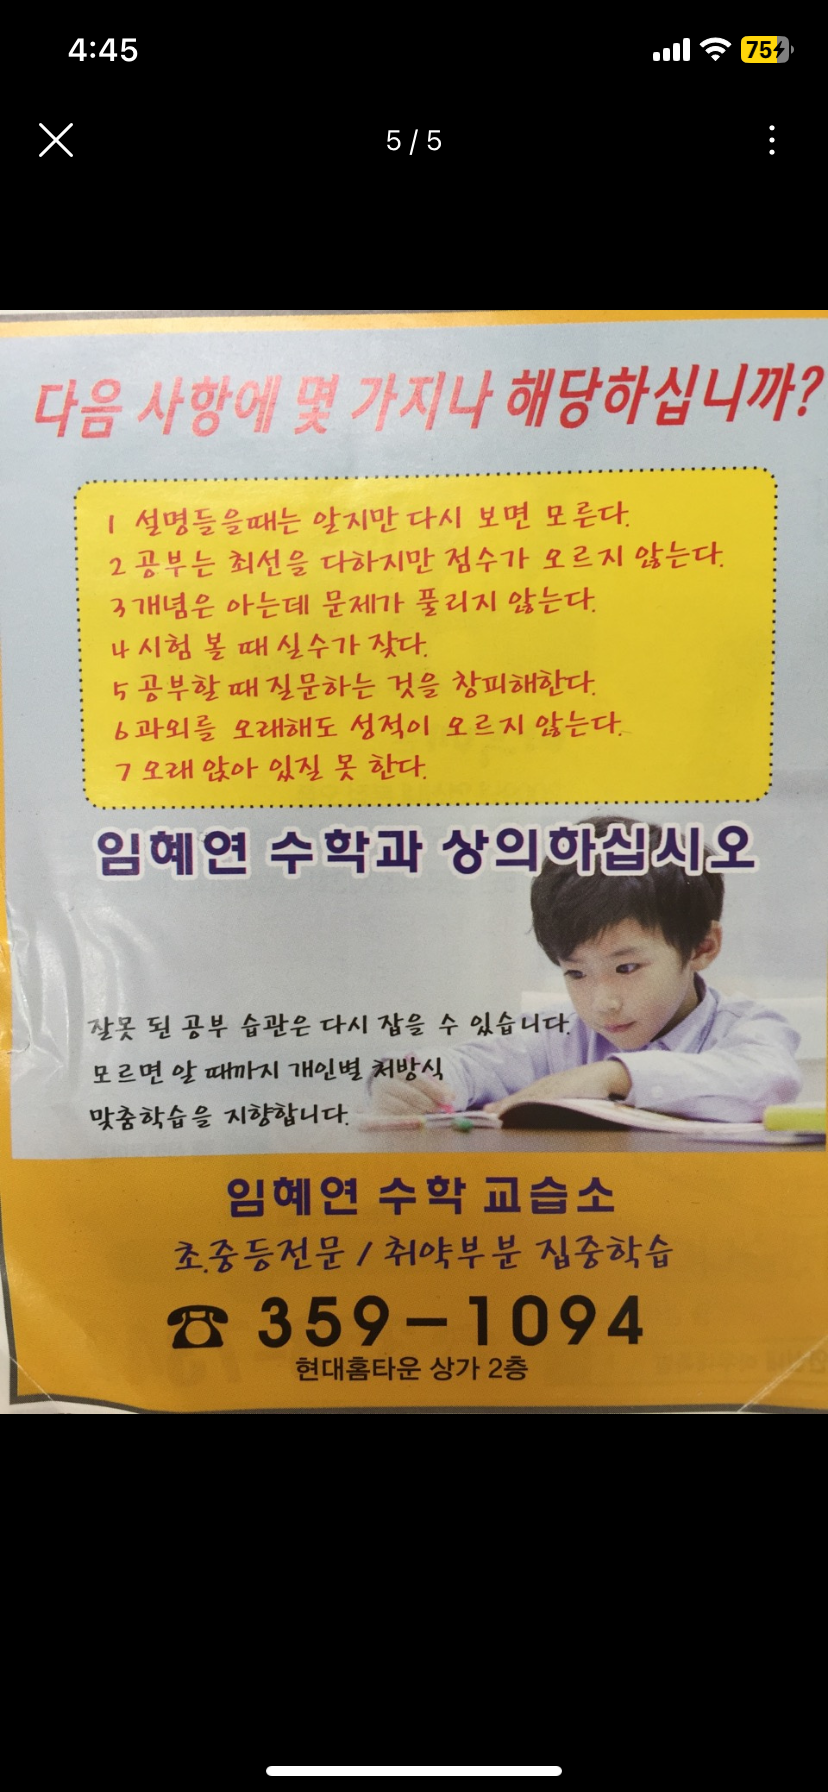 4:45
75
5 / 5
다음 사항에 몇 가지나 해당하십니까?
1 설명들을때는 알지만 다시 보면 모른다.
2 공부는 최선을 다하지만 점수가 오르지 않는다.
3 개념은 아는데 문제가 풀리지 않는다.
4 시험 볼 때 실수가 잦다.
5 공부할 때 질문하는 것을 창피해한다.
6 과외를 오래해도 성적이 오르지 않는다.
7 오래 앉아 있질 못 한다.
임혜연 수학과 상의하십시오
잘못 된 공부 습관은 다시 잡을 수 있습니다.
모르면 알 때까지 개인별 처방식
맞춤학습을 지향합니다.
임혜연 수학 교습소
초.중등전문 / 취약부분 집중학습
☎ 359-1094
현대홈타운 상가 2층